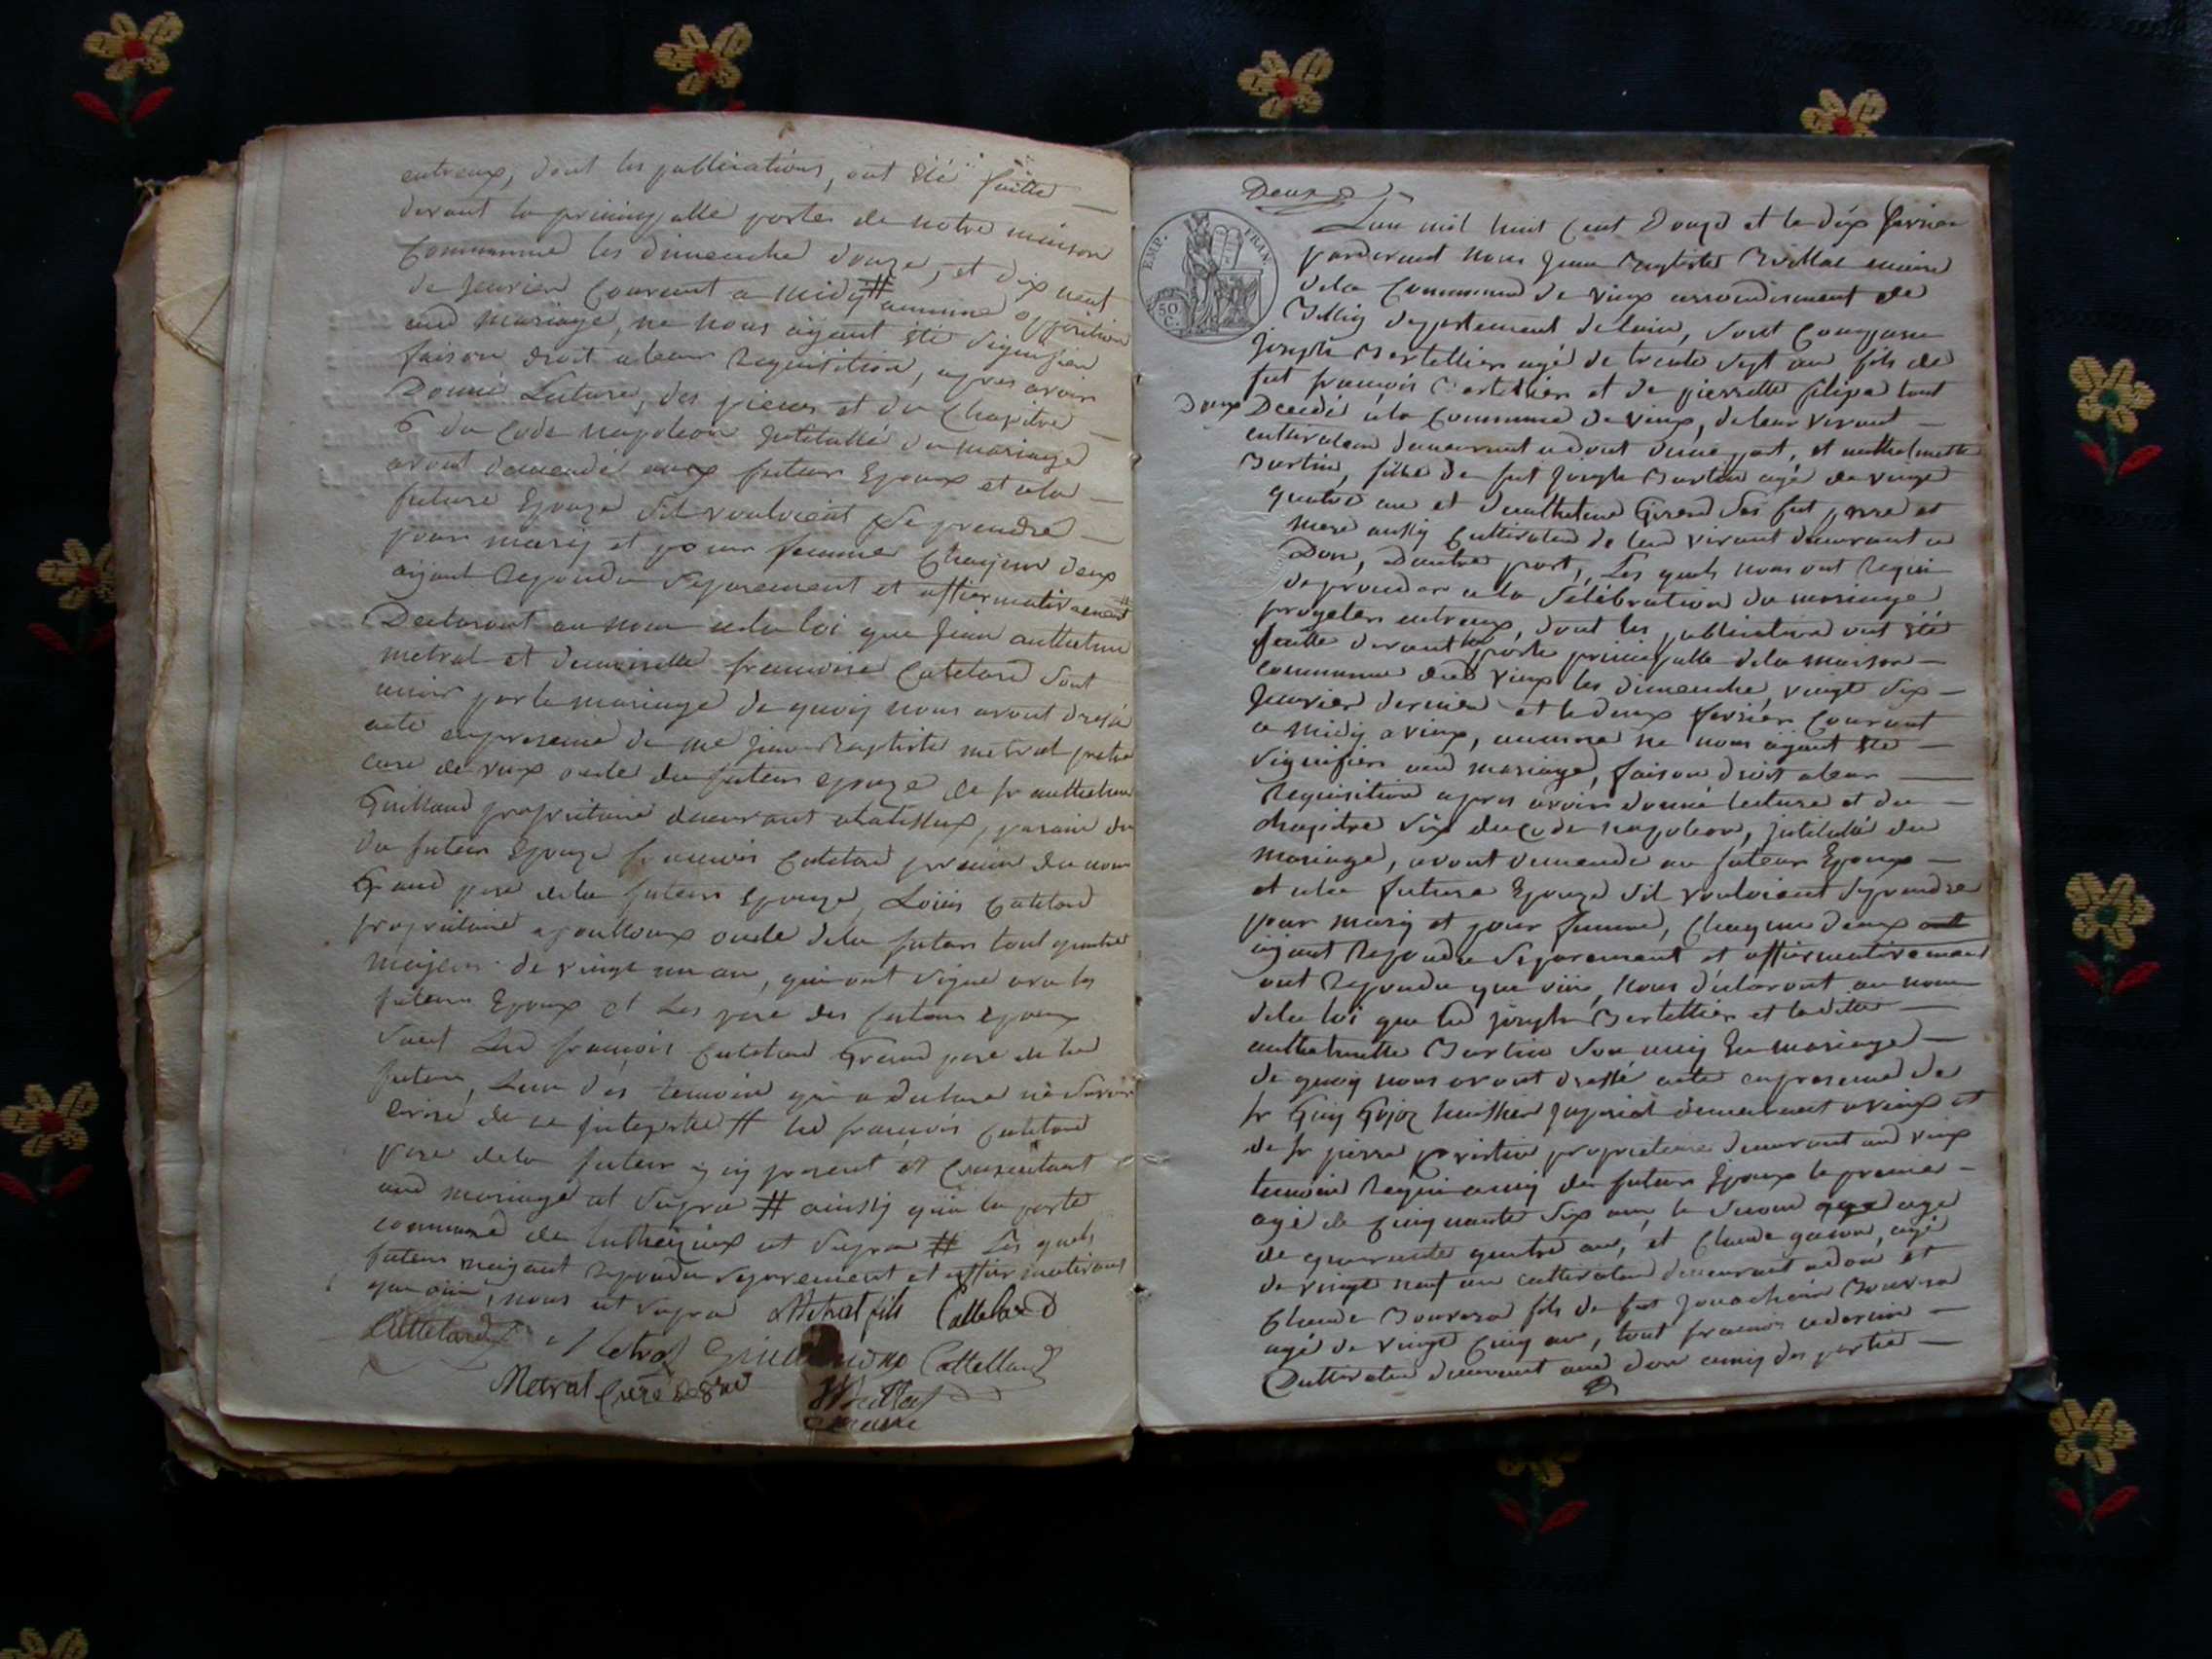 entreux, dont les publications, ont été faitte
devant la principalle porte de notre maison
Commune les dimenche douze, et dix neuf
de Janvier Courant a midÿ # aucune opposition
aud mariage, ne nous aÿant été signifier
faison droit a leur Requisition, apres avoir
Donné Lecture, des pieces et du Chapitre
6 du Code napoleon Intitullé du mariage
avont demendé aux futeur Epoux et a la
future Epouze s'il vouloient se prendre
pour marÿ et pour femme Chaqun deux
aÿant Repondu separement et affirmativement
Declaront au nom de la loi que Jean anthelme
metral et demoiselle francoise Catelard sont
unir par le mariage de quoÿ nous avont dressé
acte en presence de me Jean Baptiste metral pretre
cure de vieux oncle du futeur epouze de sr anthelme
Guillaud propriétaire demeurant a, parain du
du futeur Epouze francois Catelard premier du nom
Grand pere de la futeur epouze, Loüis Catelard
propriétaire a oncle de la futeur tout quatre
majeur de vingt un an, qui ont signé avec les
futeur Epoux et Les pere des futeur epoux
sauf Led francois Catelard Grand pere de lad
futeur, Lun des temoin qui a declaré ne savoir
Ecrire de ce interpellé # led francois Catelard
pere de la futeur ÿ present et Consentant
aud mariage ut supra # ainsÿ qu'a la porte
commune de ut supra # Les quels
futeur m'aÿant repondu separement et affirmativement
que oüi, nous ut supra Metral fils Cattelard
Cattelard Metral Guillaud Cattellard
Metral Curé de
Brillat
maire
Deux
EMP. FRAN.
50 C.
Lan mil huit Cent Douze et le dix fevrier
pardevant nous Jean Baptiste Brillat maire
de la Commune de vieux arrondisement de
Belley departement de lain, sont Comparu
Joseph Bertellier agé de trente sept an fils de
fut francois Bertellier et de pierrette filipe tout
Deux
Decedé a la Commune de vieux, de leur vivant
cultivateur demeurant a dont dune part, et anthelmette
Martin, fille de fut Joseph Martin agé de vingt
quatre an et danthelme Girerd ses fut pere et
mere aussÿ Cultivateur de leur vivant demeurant a
Don, Dautre part, Les quels nous ont Requi
de proceder a la Sélébration du mariage
projeter entreux, dont les publication ont été
faitte devant la porte principalle de la maison
commune dud vieux les dimenche, vingt six
Janvier dernier et le deux fevrier Courant
a midÿ a vieux, aucune ne nous aÿant été
signifier aud mariage, faison droit a leur
Requisition apres avoir donné lecture et du
chapitre six du Code napoleon, Intitullé du
mariage, avont demende au futeur Epoux
et a la future Epouze s'il vouloient se prendre
pour marÿ et pour femme, Chaqun deux ont
aÿant Repondu separement et affirmativement
ont Repondu que oüi, nous déclaront au nom
de la loi que led joseph Bertellier et laditte
anthelmette Martin son unÿ En mariage
de quoÿ nous avont dressé acte en presence de
sr Guÿ Gojoz huissier Imperial demeurant a vieux et
de sr pierre propriétaire demeurant aud vieux
temoin Requi amÿ du futeur Epoux le premier
agé de Cinquante six an, le second agé
de quarante quatre an, et Claude, agé
de vingt neuf an cultivateur demeurant a don et
Claude Bouvera fils de fut Jouachain Bouvera
agé de vingt Cinq an, tout
Cultivateur demeurant aud don amÿ des partie